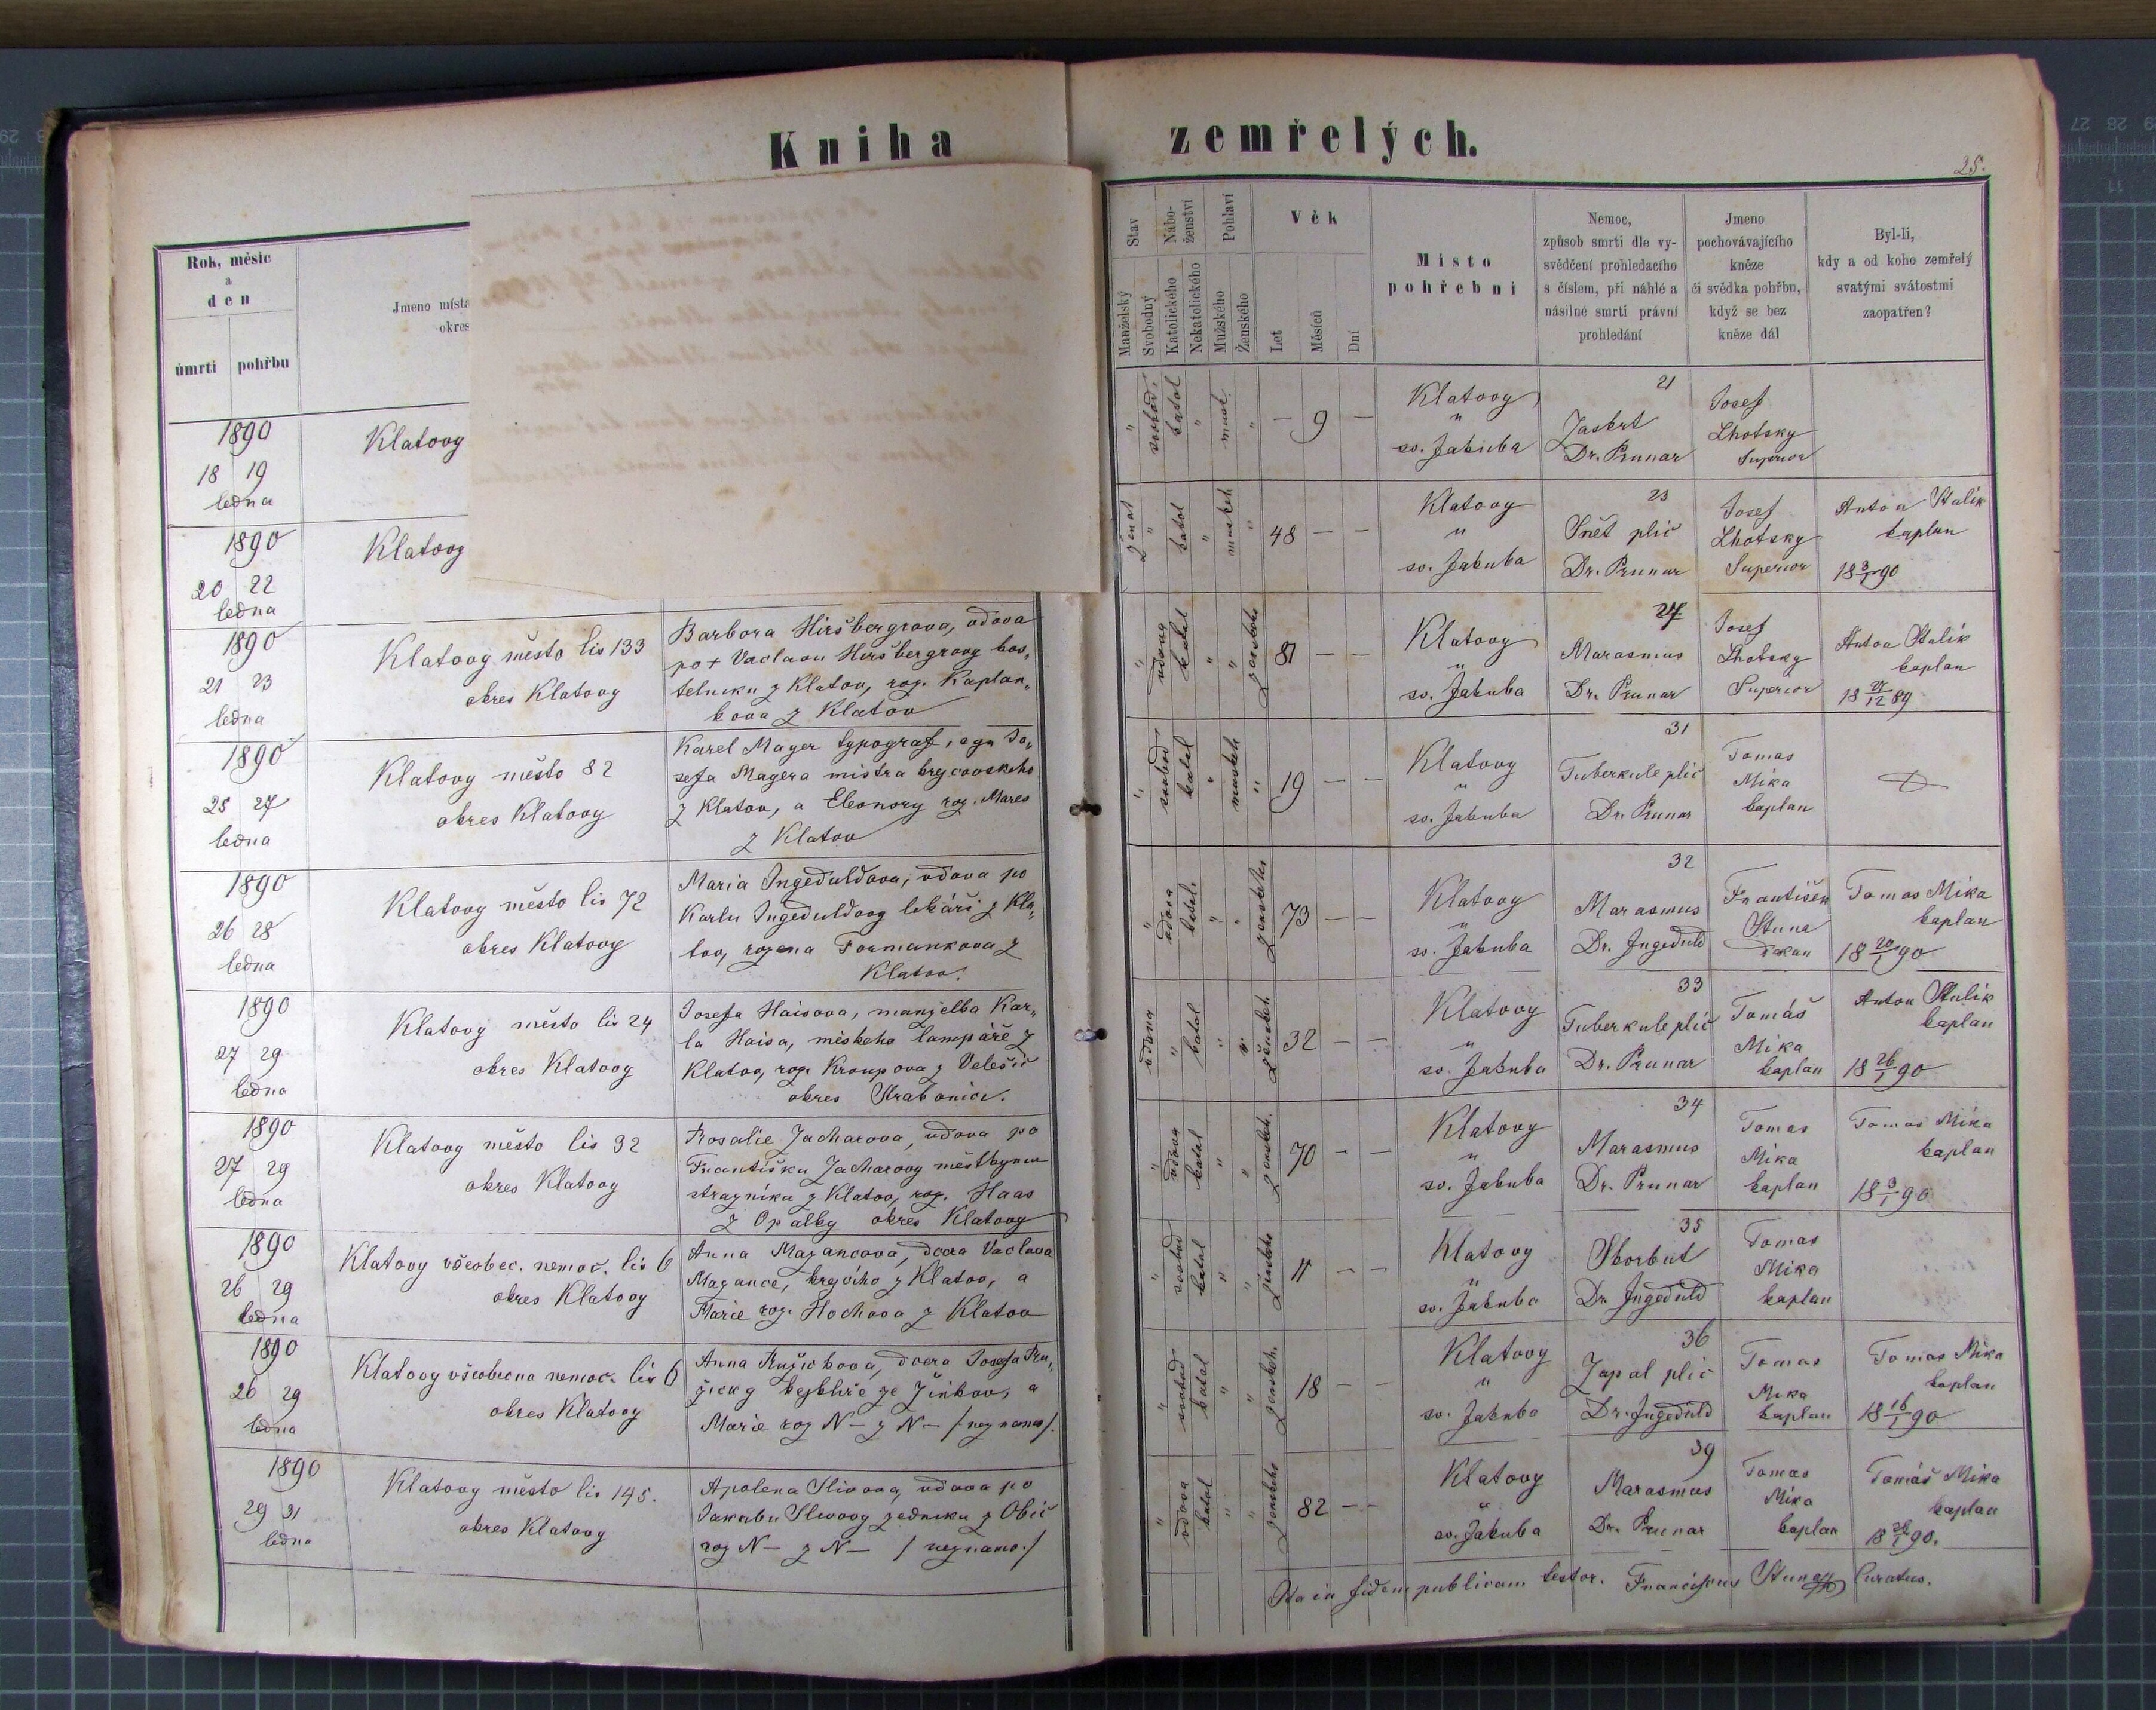 Kniha zemřelých.
25.
Rok, měsíc
a
den
úmrtí pohřbu
Jmeno místa
okres
Stav
Nábo-
ženství
Pohlaví
Věk
Manželský
Svobodný
Katolického
Nekatolického
Mužského
Ženského
Let
Měsíců
Dní
Místo
pohřební
Nemoc,
způsob smrti dle vy-
svědčení prohledacího
s číslem, při náhlé a
násilné smrti právní
prohledání
Jmeno
pochovávajícího
kněze
či svědka pohřbu,
když se bez
kněze dál
Byl-li,
kdy a od koho zemřelý
svatými svátostmi
zaopatřen?
1890
18 19
ledna
Klatovy
svobod.
katol
— 9 —
Klatovy
"
sv. Jakuba
21
Dr. Prunar
Josef
Lhotsky
Superior
1890
20 22
ledna
Klatovy
ženat
katol
48 — —
Klatovy
"
sv. Jakuba
23
Snět plic
Dr. Prunar
Josef
Lhotsky
Superior
Anton Stulík
kaplan
18 3/1 90
1890
21 23
ledna
Klatovy město lis 133
okres Klatovy
Barbora Hiršbergrova, vdova
po + Vaclavu Hiršbergrovy kos„
telniku z Klatov, roz. Kaplan„
kova z Klatov
vdova
katol
ženskeho
81 — —
Klatovy
"
sv. Jakuba
24
Marasmus
Dr. Prunar
Josef
Lhotsky
Superior
Anton Stulík
kaplan
18 27/12 89
1890
25 27
ledna
Klatovy město 82
okres Klatovy
Karel Mayer typograf, syn Jo„
sefa Mayera mistra krejcovskeho
z Klatov, a Eleonory roz. Mares
z Klatov
svobod.
katol
mužskeh
19 — —
Klatovy
"
sv. Jakuba
31
Tuberkule plic
Dr. Prunar
Tomas
Mika
kaplan
1890
26 28
ledna
Klatovy město lis 72
okres Klatovy
Maria Ingeduldova, vdova po
Karlu Ingeduldovy lékáři z Kla„
tov, rozena Formankova z
Klatov.
vdova
katol.
ženskeho
73 — —
Klatovy
"
sv. Jakuba
32
Marasmus
Dr. Ingeduld
František
Stuna
děkan
Tomas Mika
kaplan
18 20/1 90
1890
27 29
ledna
Klatovy město lis 24
okres Klatovy
Josefa Haisova, manželka Kar„
la Haisa, měskeho lampáře z
Klatov, roz. Kroupova z Velešic
okres Strakonice.
vdana
katol
ženskeh
32 — —
Klatovy
"
sv. Jakuba
33
Tuberkule plic
Dr. Prunar
Tomáš
Mika
kaplan
Anton Stulík
kaplan
18 26/1 90
1890
27 29
ledna
Klatovy město lis 32
okres Klatovy
Rosalie Zacharova, vdova po
Františku Zacharovy
strazníku z Klatov, roz. Haas
z Opalky okres Klatovy
vdova
katol
ženskeh.
70 — —
Klatovy
"
sv. Jakuba
34
Marasmus
Dr. Prunar
Tomas
Mika
kaplan
Tomas Mika
kaplan
18 3/1 90
1890
26 29
ledna
Klatovy všeobec. nemoc. lis 6
okres Klatovy
Anna Mazancova, dcera Vaclava
Mazance, krejčího z Klatov, a
Marie roz. Hochova z Klatov
svobod
katol
ženskeho
11 — —
Klatovy
"
sv. Jakuba
35
Skorbut
Dr Ingeduld
Tomas
Mika
kaplan
1890
26 29
ledna
Klatovy všeobecna nemoc. lis 6
okres Klatovy
Anna Ružickova, dcera Josefa Ru„
žicky ze Žinkov, a
Marie roz N— z N— /neznamo/.
svobod
katol
ženskeh.
18 — —
Klatovy
"
sv. Jakuba
36
Zapal plic
Dr. Ingeduld
Tomas
Mika
kaplan
Tomas Mika
kaplan
18 16/1 90
1890
29 31
ledna
Klatovy město lis 145.
okres Klatovy
Apolena Slivova, vdova po
Jakubu Slivovy zedniku z Obic
roz N— z N— /neznamo./
vdova
katol
ženskeho
82 — —
Klatovy
"
sv. Jakuba
39
Marasmus
Dr. Prunar
Tomas
Mika
kaplan
Tomáš Mika
kaplan
18 90.
Ita in fidem publicam testor. Franciscus Stuna Curatus.